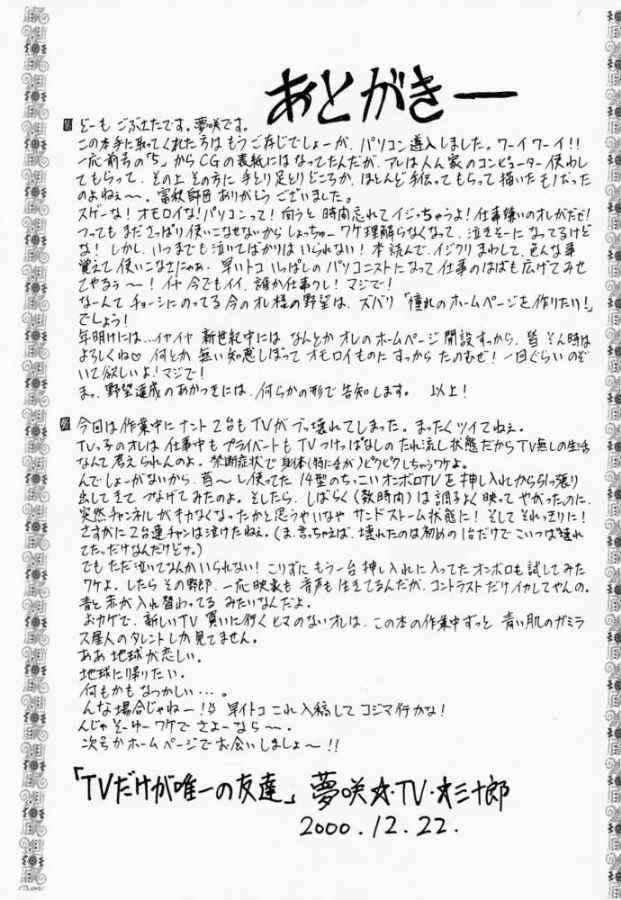 あとがきー
どーも ごぶさたです。夢咲です。
この本手に取ってくれた方は もうご存じでしょーが、パソコン導入しました。ワーイ ワーイ!!
一応前号の「5」からCGの表紙には なってたんだが、アレは人ん家のコンピューター使わし
てもらって、その上 その方に 手とり足とりどころか、ほとんど手伝ってもらって描いたモノだった
のよねえ〜。 ありがとう ございました。
スゲーな! オモロイな! パソコンって! 向うと 時間忘れて イジっちゃうよ! 仕事嫌いのオレがだぜ!
つっても まださっぱり使いこなせないから しょっちゅー ワケ理解らなくなって、泣きそーになってるけど
な! しかし、いつまでも泣いてばかりは いられない! 本読んで、イジクリまわして、色んな事
覚えて 使いこなさにゃあ、早いトコ いっぱしの パソコニストになって仕事のはばも広げてみせ
てやるぅ〜! イヤ 今でもイイ、誰か仕事クレ! マジで!
なーんて チョーシにのってる 今のオレ様の野望は、ズバリ「憧れのホームページを作りたい!」
でしょう!
年明けには…イヤイヤ 新世紀中には なんとか オレのホームページ開設すっから、皆 そん時は
よろしくね♡ 何とか 無い知恵しぼって オモロイものに すっから たのむぜ! 一回ぐらい のぞ
いて欲しいよ! マジで!
まっ、野望達成のあかつきには、何らかの形で告知します。 以上!
今回は作業中に ナント 2台も TVが ブッ壊れてしまった。まったくツイてねえ。
TVっ子のオレは 仕事中も プライベートも TVつけっぱなしの たれ流し状態だから TV無しの生活
なんて考えられんのよ。禁断症状で 身体(特に手が)ピクピクしちゃうワケよ。
んでしょーがないから、昔〜し使ってた 14型のちっこい オンボロTVを 押し入れから引っ張り
出してきて つなげてみたのよ。そしたら、しばらく(数時間)は調子よく 映って やがったのに、
突然チャンネルが キカなくなったかと思うやいなや サンドストーム状態に! そして それっきりに!
さすがに 2台連チャンは泣けたねえ。(ま、言っちゃえば、壊れたのは初めの1台だけで こいつは壊れ
てたっだけなんだけどサ。)
でも ただ泣いてなんかいられない! こりずに もう一台 押し入れに入ってた オンボロも試してみた
ワケよ。したら その野郎、一応映像も 音声も 生きてるんだが、コントラストだけイカレてやんの。
青と赤が入れ替わってる みたいなんだよ。
おカゲで、新しいTV 買いに行く ヒマのないオレは、この本の作業中ずっと 青い肌のガミラ
ス星人のタレントしか見てません。
ああ 地球が恋しい。
地球に帰りたい。
何もかも なつかしい…。
んな場合じゃねー! 早イトコ これ入稿して コジマ行かな!
んじゃ そーゆーワケで さよーなら〜。
次号かホームページで お会いしましょ〜!!
「TVだけが唯一の友達」 夢咲☆・TV・☆三十郎
2000.12.22.